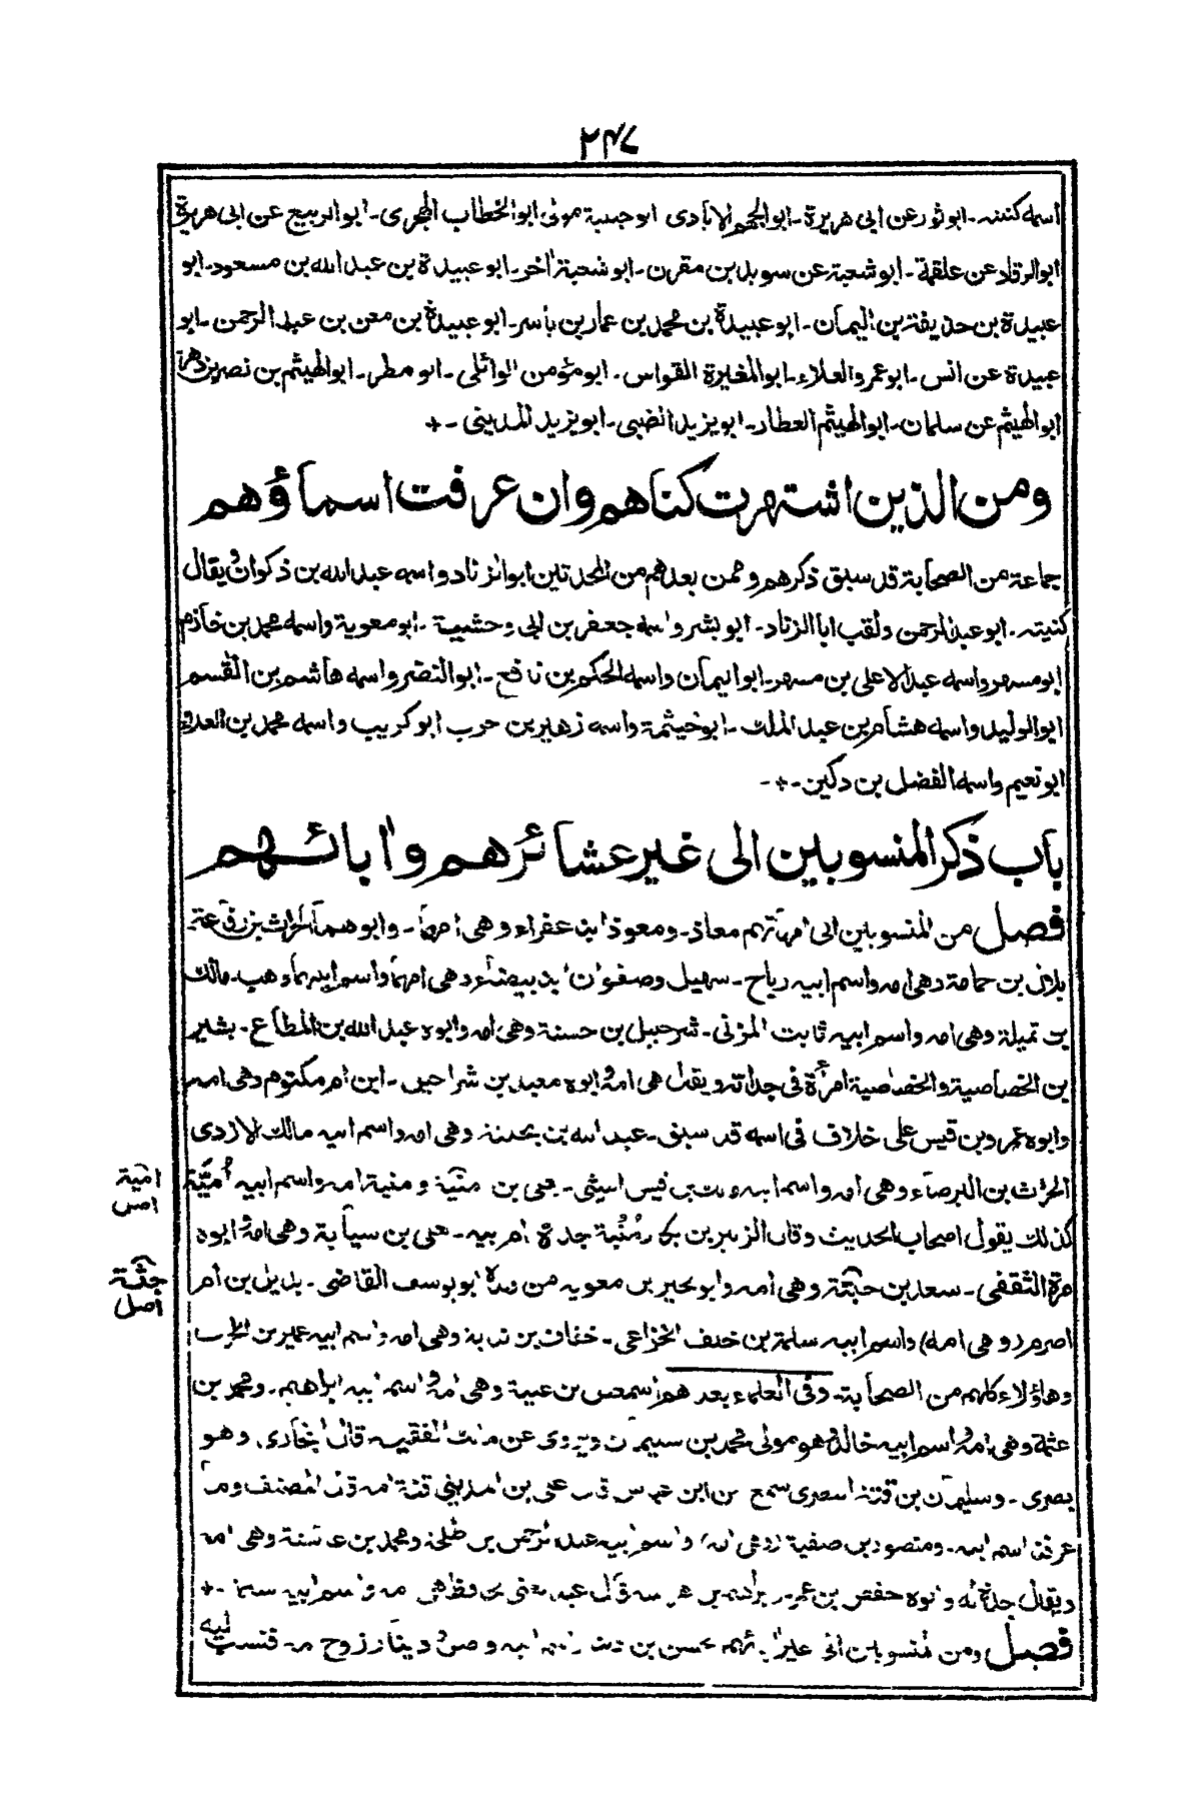 ٢٤٧
اسمه كنيته - ابو ثور عن ابى هريرة - ابو الجهم الايادى ابو حبيبة مولى ابو الخطاب الهجرى - ابو الربيع عن ابى هريرة
ابو الرقاد عن علقمة - ابو شعبة عن سويد بن مقرن - ابو شعبة اخر - ابو عبيدة بن عبد الله بن مسعود - ابو
عبيدة بن حذيفة بن اليمان - ابو عبيدة بن محمد بن عمار بن ياسر - ابو عبيدة بن معن بن عبد الرحمن - ابو
عبيدة عن انس - ابو عمرو العلاء - ابو المغيرة القواس - ابو مؤمن الوائلى - ابو مطر - ابو الهيثم بن نصر بن دهر
ابو الهيثم عن سلمان - ابو الهيثم العطار - ابو يزيد الضبى - ابو يزيد المدينى - +
ومن الذين اشتهرت كناهم وان عرفت اسماؤهم
جماعة من الصحابة قد سبق ذكرهم وممن بعدهم من المحدثين ابو الزناد واسمه عبد الله بن ذكوان ويقال
كنيته - ابو عبد الرحمن ولقب ابا الزناد - ابو بشر واسمه جعفر بن ابى وحشية - ابو معوية واسمه محمد بن خازم
ابو مسهر واسمه عبد الاعلى بن مسهر - ابو اليمان واسمه الحكم بن نافع - ابو النضر واسمه هاشم بن القسم
ابو الوليد واسمه هشام بن عبد الملك - ابو خيثمة واسمه زهير بن حرب ابو كريب واسمه محمد بن العلاء
ابو نعيم واسمه الفضل بن دكين - + -
باب ذكر المنسوبين الى غير عشائرهم وابائهم
فصل من المنسوبين الى امهاتهم معاذ - ومعوذ ابنا عفراء وهى امهما - وابوهما الحرث بن رفاعة
بلال بن حمامة وهى امه واسم ابيه رباح - سهيل وصفوان ابنا بيضاء وهى امهما واسم ابيهما وهب - مالك
بن تميلة وهى امه واسم ابيه ثابت المزنى - شرحبيل بن حسنة وهى امه وابوه عبد الله بن المطاع - بشير
بن الخصاصية والخصاصية امرأة فى جداته ويقال هى امه وابوه معبد بن شراحيل - ابن ام مكتوم وهى امه
وابوه عمرو بن قيس على خلاف فى اسمه قد سبق - عبد الله بن بحينة وهى امه واسم ابيه مالك الازدى
الحرث بن البرصاء وهى امه واسم ابيه مالك بن قيس الليثى - يعلى بن منية ومنية امه واسم ابيه اُميّة
امية
اصل
كذلك يقول اصحاب الحديث وقال الزبير بن بكار مُنْية جدة ام ابيه - يعلى بن سيابة وهى امه وابوه
مرة الثقفى - سعد بن حبتة وهى امه وابوه بحير بن معويه من ولده ابو يوسف القاضى - بديل بن ام
حبتة
اصل
اصرم (وهى امه) واسم ابيه سلمة بن خلف الخزاعى - خفاف بن ندبة وهى امه واسم ابيه عمير بن الحرث
وهاؤلاء كلهم من الصحابة - وفى العلماء بعدهم اسمعيل بن علية وهى امه واسم ابيه ابراهيم - ومحمد بن
عثمة وهى امه واسم ابيه خالد وهو مولى محمد بن سليمان ويروى عن مالك الفقيه قال البخارى وهو
بصرى - وسليمان بن قتة البصرى سمع من ابن عباس قال على بن المدينى قتة امه قال المصنف وما
عرفنا اسم ابيه - ومنصور بن صفية (وهى امه) واسم ابيه عبد الرحمن بن طلحة ومحمد بن عائشة وهى امه
ويقال جدة له وابوه حفص بن عمر - ابراهيم بن هراسة قال عبد الغنى الحافظ هى امه واسم ابيه سلمة - +
فصل ومن المنسوبين الى غير ابائهم الحسن بن دينار اسم ابيه واصل ودينار زوج امه فنسب اليه